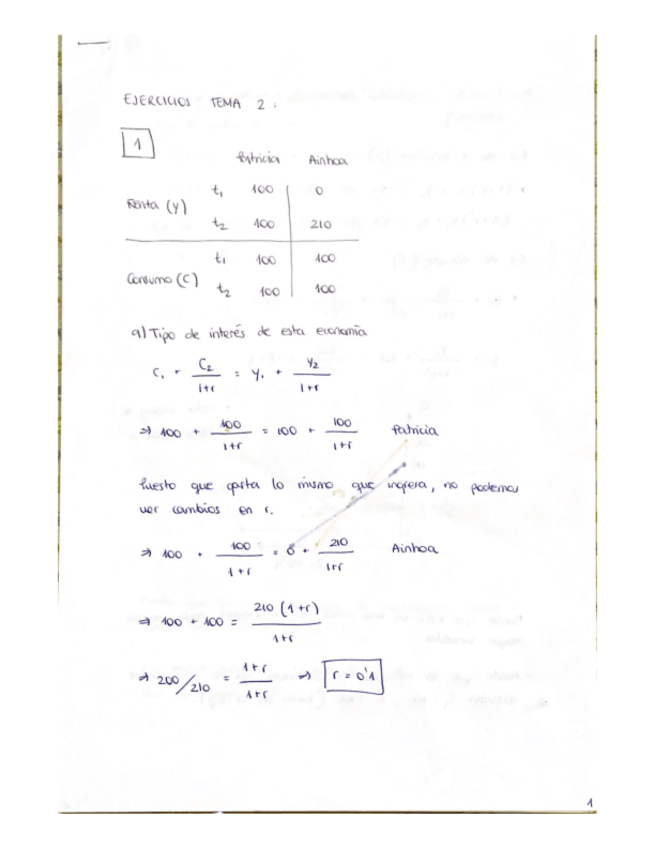 EJERCICIOS TEMA 2:
1
Patricia Ainhoa
Renta (Y) t₁ 100 0
t₂ 100 210
Consumo (C) t₁ 100 100
t₂ 100 100
a) Tipo de interés de esta economía
C₁ + C₂/1+r = Y₁ + Y₂/1+r
⇒ 100 + 100/1+r = 100 + 100/1+r Patricia
Puesto que gasta lo mismo que ingresa, no podemos
ver cambios en r.
⇒ 100 + 100/1+r = 0 + 210/1+r Ainhoa
⇒ 100 + 100 = 210 (1+r)/1+r
⇒ 200/210 = 1+r/1+r ⇒ r = 0'1
1